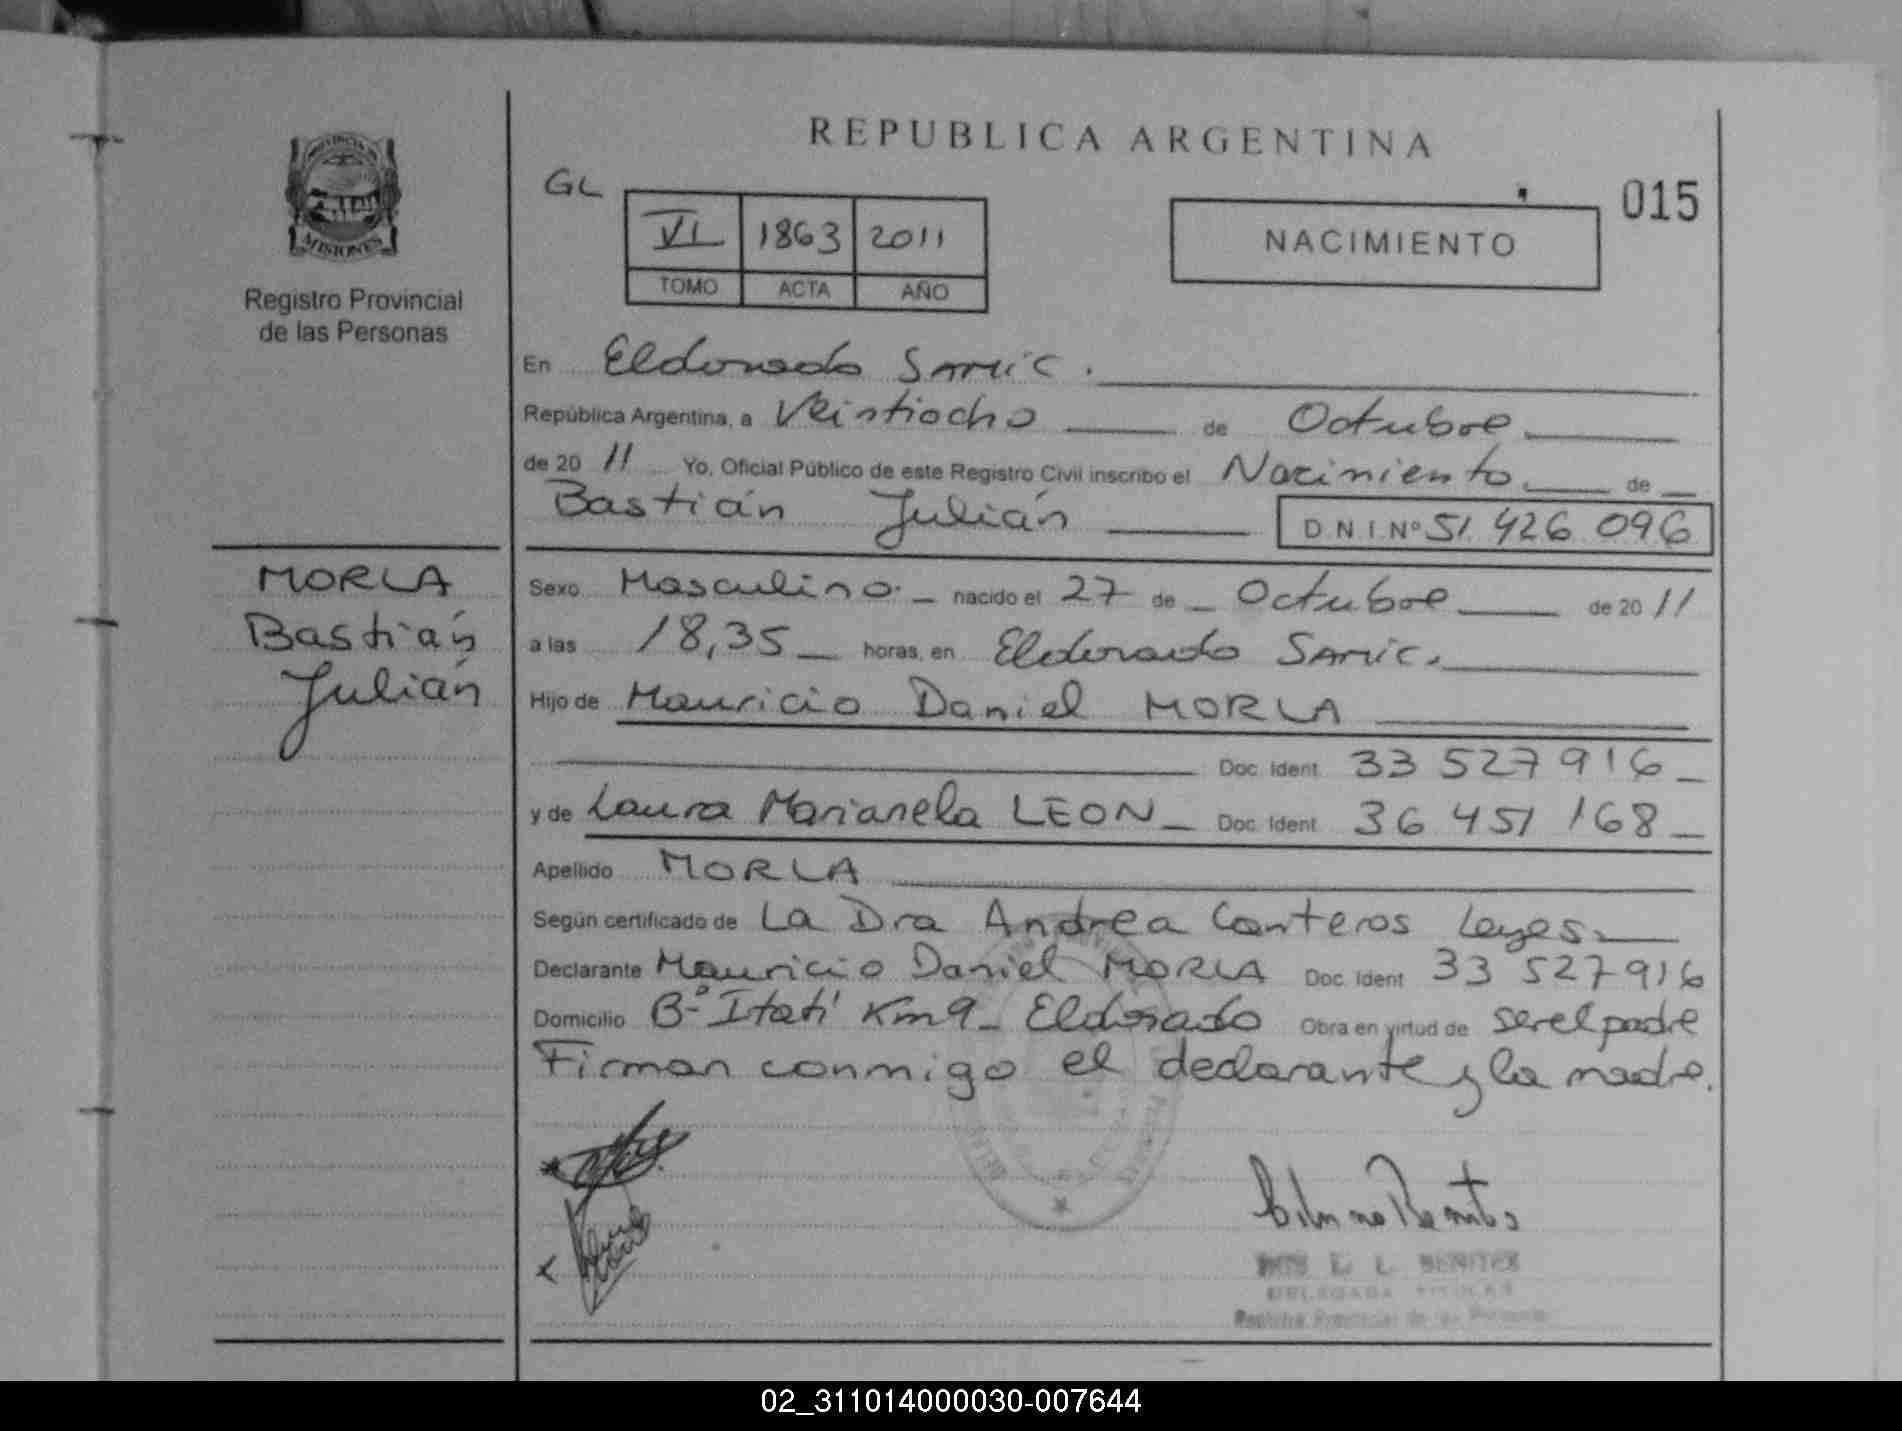 REPUBLICA ARGENTINA
015
GL
VI 1863 2011
TOMO ACTA AÑO
NACIMIENTO
PROVINCIA DE
MISIONES
Registro Provincial
de las Personas
En Eldorado SAMIC.
República Argentina, a Veintiocho de Octubre
de 20 11 Yo, Oficial Público de este Registro Civil inscribo el Nacimiento de
Bastián Julián D.N.I.Nº 51.426.096
MORLA
Bastián
Julián
Sexo Masculino. nacido el 27 de Octubre de 20 11
a las 18,35 horas, en Eldorado SAMIC.
Hijo de Mauricio Daniel MORLA
Doc. Ident. 33 527 916
y de Laura Marianela LEON Doc. Ident. 36 451 168
Apellido MORLA
Según certificado de La Dra Andrea Canteros Leyes
Declarante Mauricio Daniel MORLA Doc. Ident. 33 527 916
Domicilio Bº Itatí Km 9 Eldorado Obra en virtud de ser el padre
Firman conmigo el declarante y la madre.
BENITEZ
DELEGADA TITULAR
Registro Provincial de las Personas
02_311014000030-007644